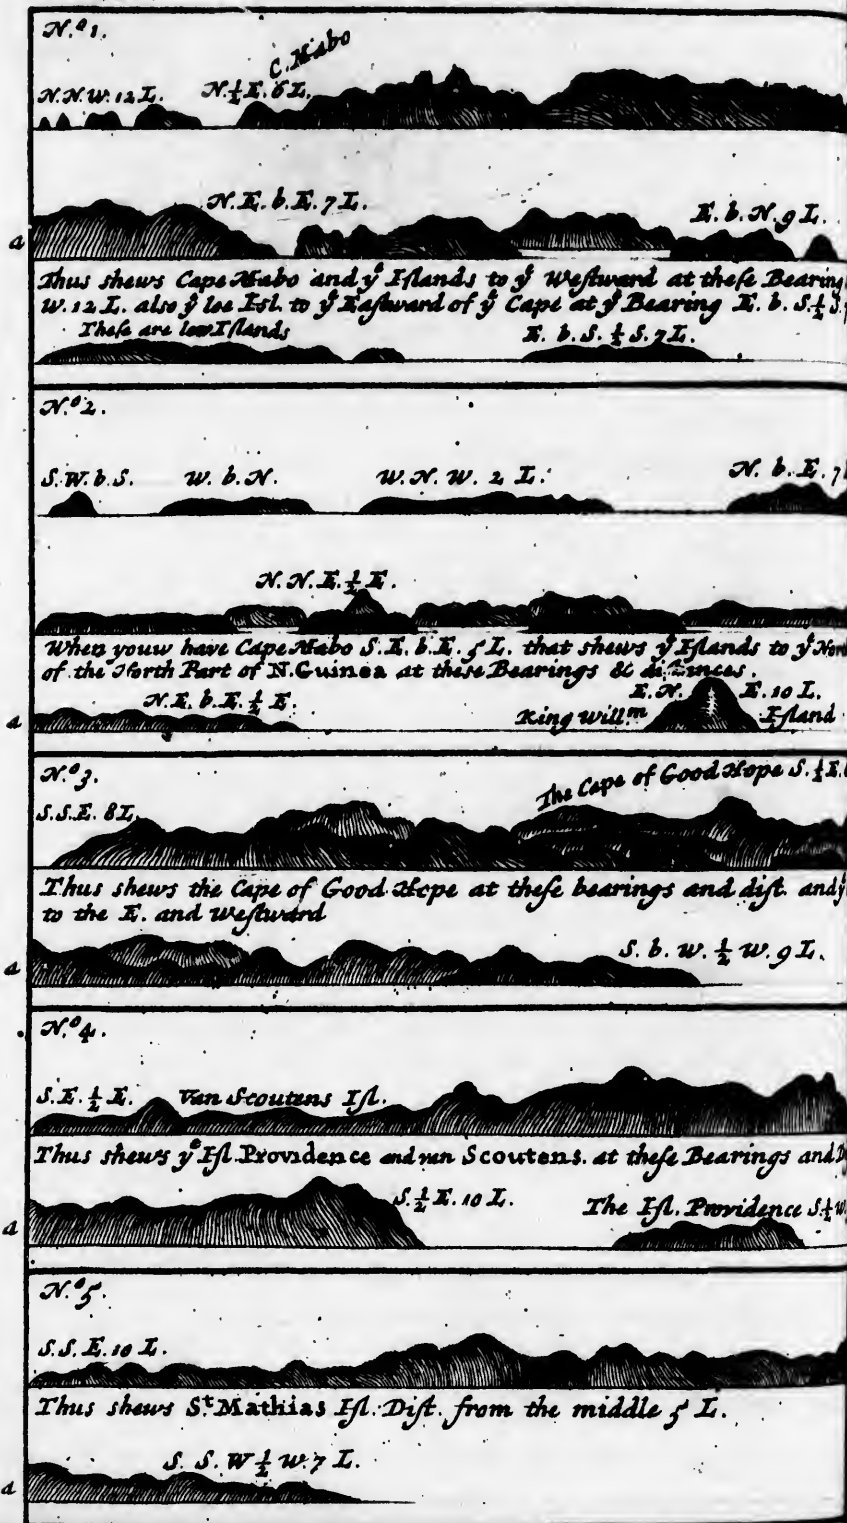 N.º 1.
C. Mabo
N.N.W. 12 L. N. ½ E. 6 L.
N.E.b.E. 7 L.
E.b.N. 9 L.
a
Thus shews Cape Mabo and yᵉ Iſlands to yᵉ Weſtward at theſe Bearing
W. 12 L. also yᵉ low Isl. to yᵉ Eaſtward of yᵉ Cape at yᵉ Bearing E. b. S. ½ S.
Theſe are low Iſlands
E. b. S. ½ S. 7 L.
N.º 2.
S.W.b.S. W.b.N. W.N.W. 2 L. N.b.E. 7
N.N.E. ½ E.
When youw have Cape Mabo S.E.b.E. 5 L. that shews yᵉ Iſlands to yᵉ Nor
of the North Part of N. Guinea at these Bearings & diſtances.
N.E.b.E. ½ E. E.N. E. 10 L.
a King Willᵐ Iſland
N.º 3.
The Cape of Good Hope S. ½ E.
S.S.E. 8 L.
Thus shews the Cape of Good Hope at theſe bearings and diſt. and yᵉ
to the E. and Weſtward
S.b.W. ½ W. 9 L.
a
N.º 4.
S.E. ½ E. Van Scoutens Iſl.
Thus shews yᵉ Iſl. Providence and van Scoutens. at theſe Bearings and
S. ½ E. 10 L. The Iſl. Providence S. ½ W.
a
N.º 5.
S.S.E. 10 L.
Thus shews Sᵗ Mathias Iſl. Diſt. from the middle 5 L.
S.S.W ½ W. 7 L.
a